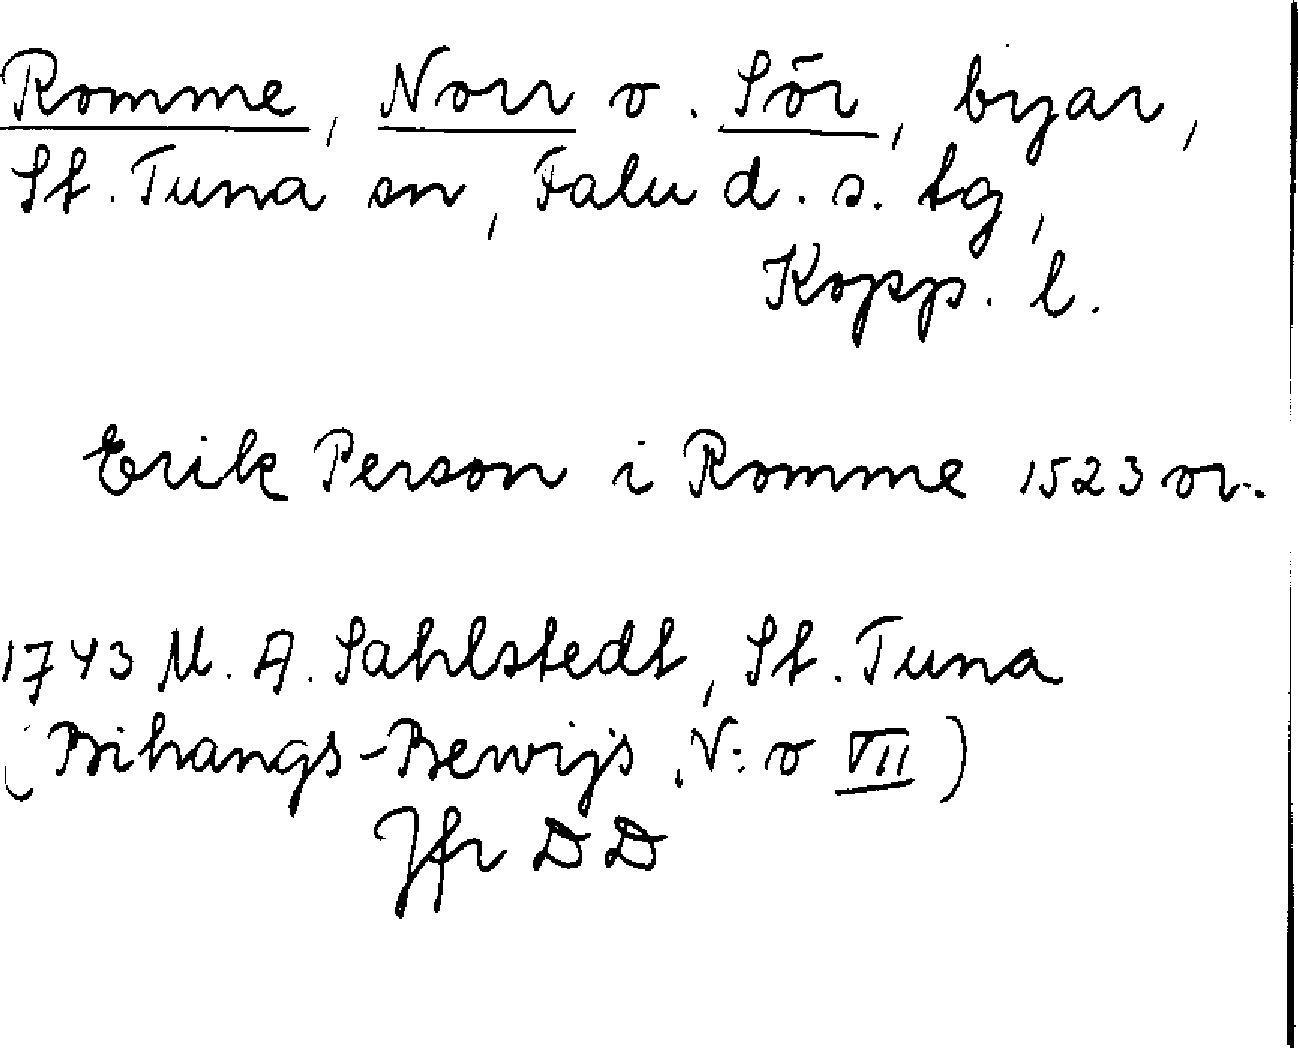 Romme, Norr o. Sör, byar,
St. Tuna sn, Falu d. s. tg,
Kopp. l.
Erik Person i Romme 1523 or.
1743 M. A. Sahlstedt, St. Tuna
(Bihangs-Bewijs, V: o VII)
Jfr DD